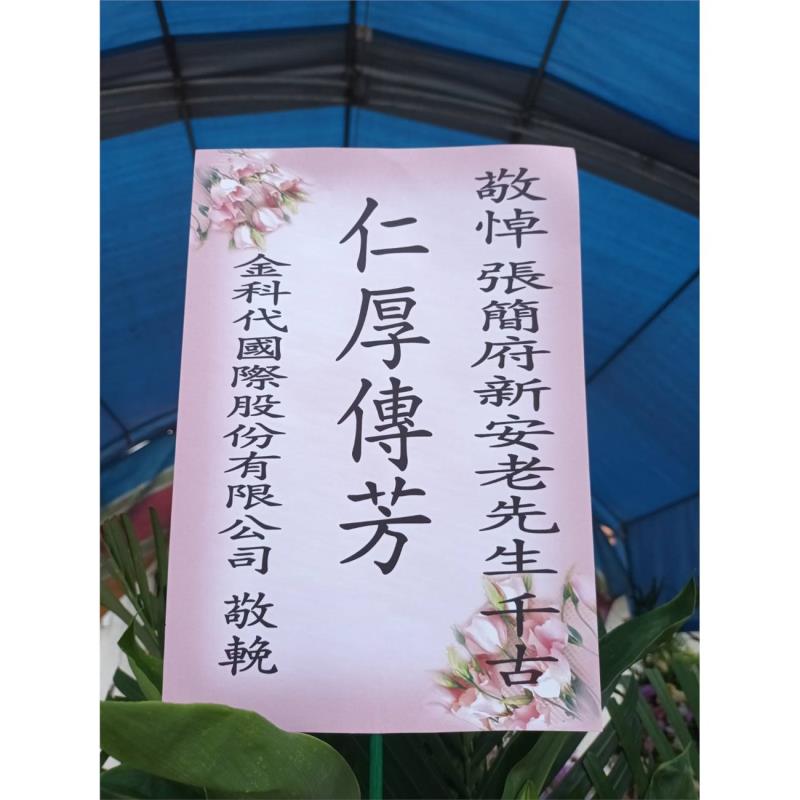 敬悼張簡府新安老先生千古
仁厚傳芳
金科代國際股份有限公司 敬輓